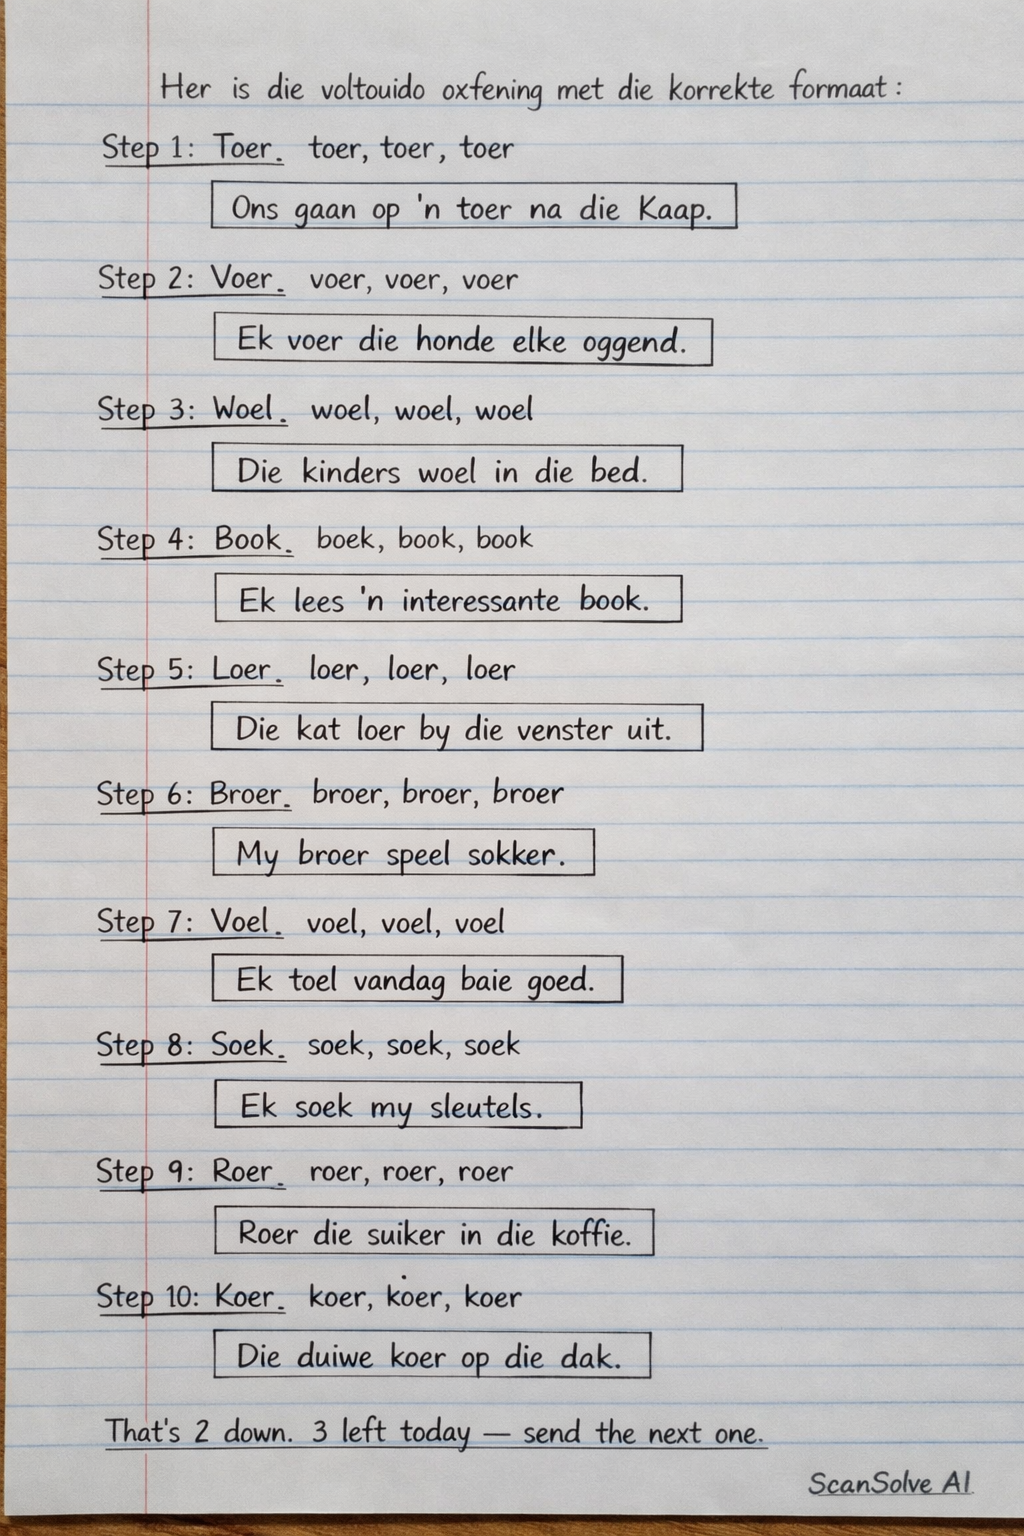 Her is die voltouido oxfening met die korrekte formaat:
Step 1: Toer. toer, toer, toer
Ons gaan op 'n toer na die Kaap.
Step 2: Voer. voer, voer, voer
Ek voer die honde elke oggend.
Step 3: Woel. woel, woel, woel
Die kinders woel in die bed.
Step 4: Book. boek, book, book
Ek lees 'n interessante book.
Step 5: Loer. loer, loer, loer
Die kat loer by die venster uit.
Step 6: Broer. broer, broer, broer
My broer speel sokker.
Step 7: Voel. voel, voel, voel
Ek toel vandag baie goed.
Step 8: Soek. soek, soek, soek
Ek soek my sleutels.
Step 9: Roer. roer, roer, roer
Roer die suiker in die koffie.
Step 10: Koer. koer, koer, koer
Die duiwe koer op die dak.
That's 2 down. 3 left today — send the next one.
ScanSolve AI